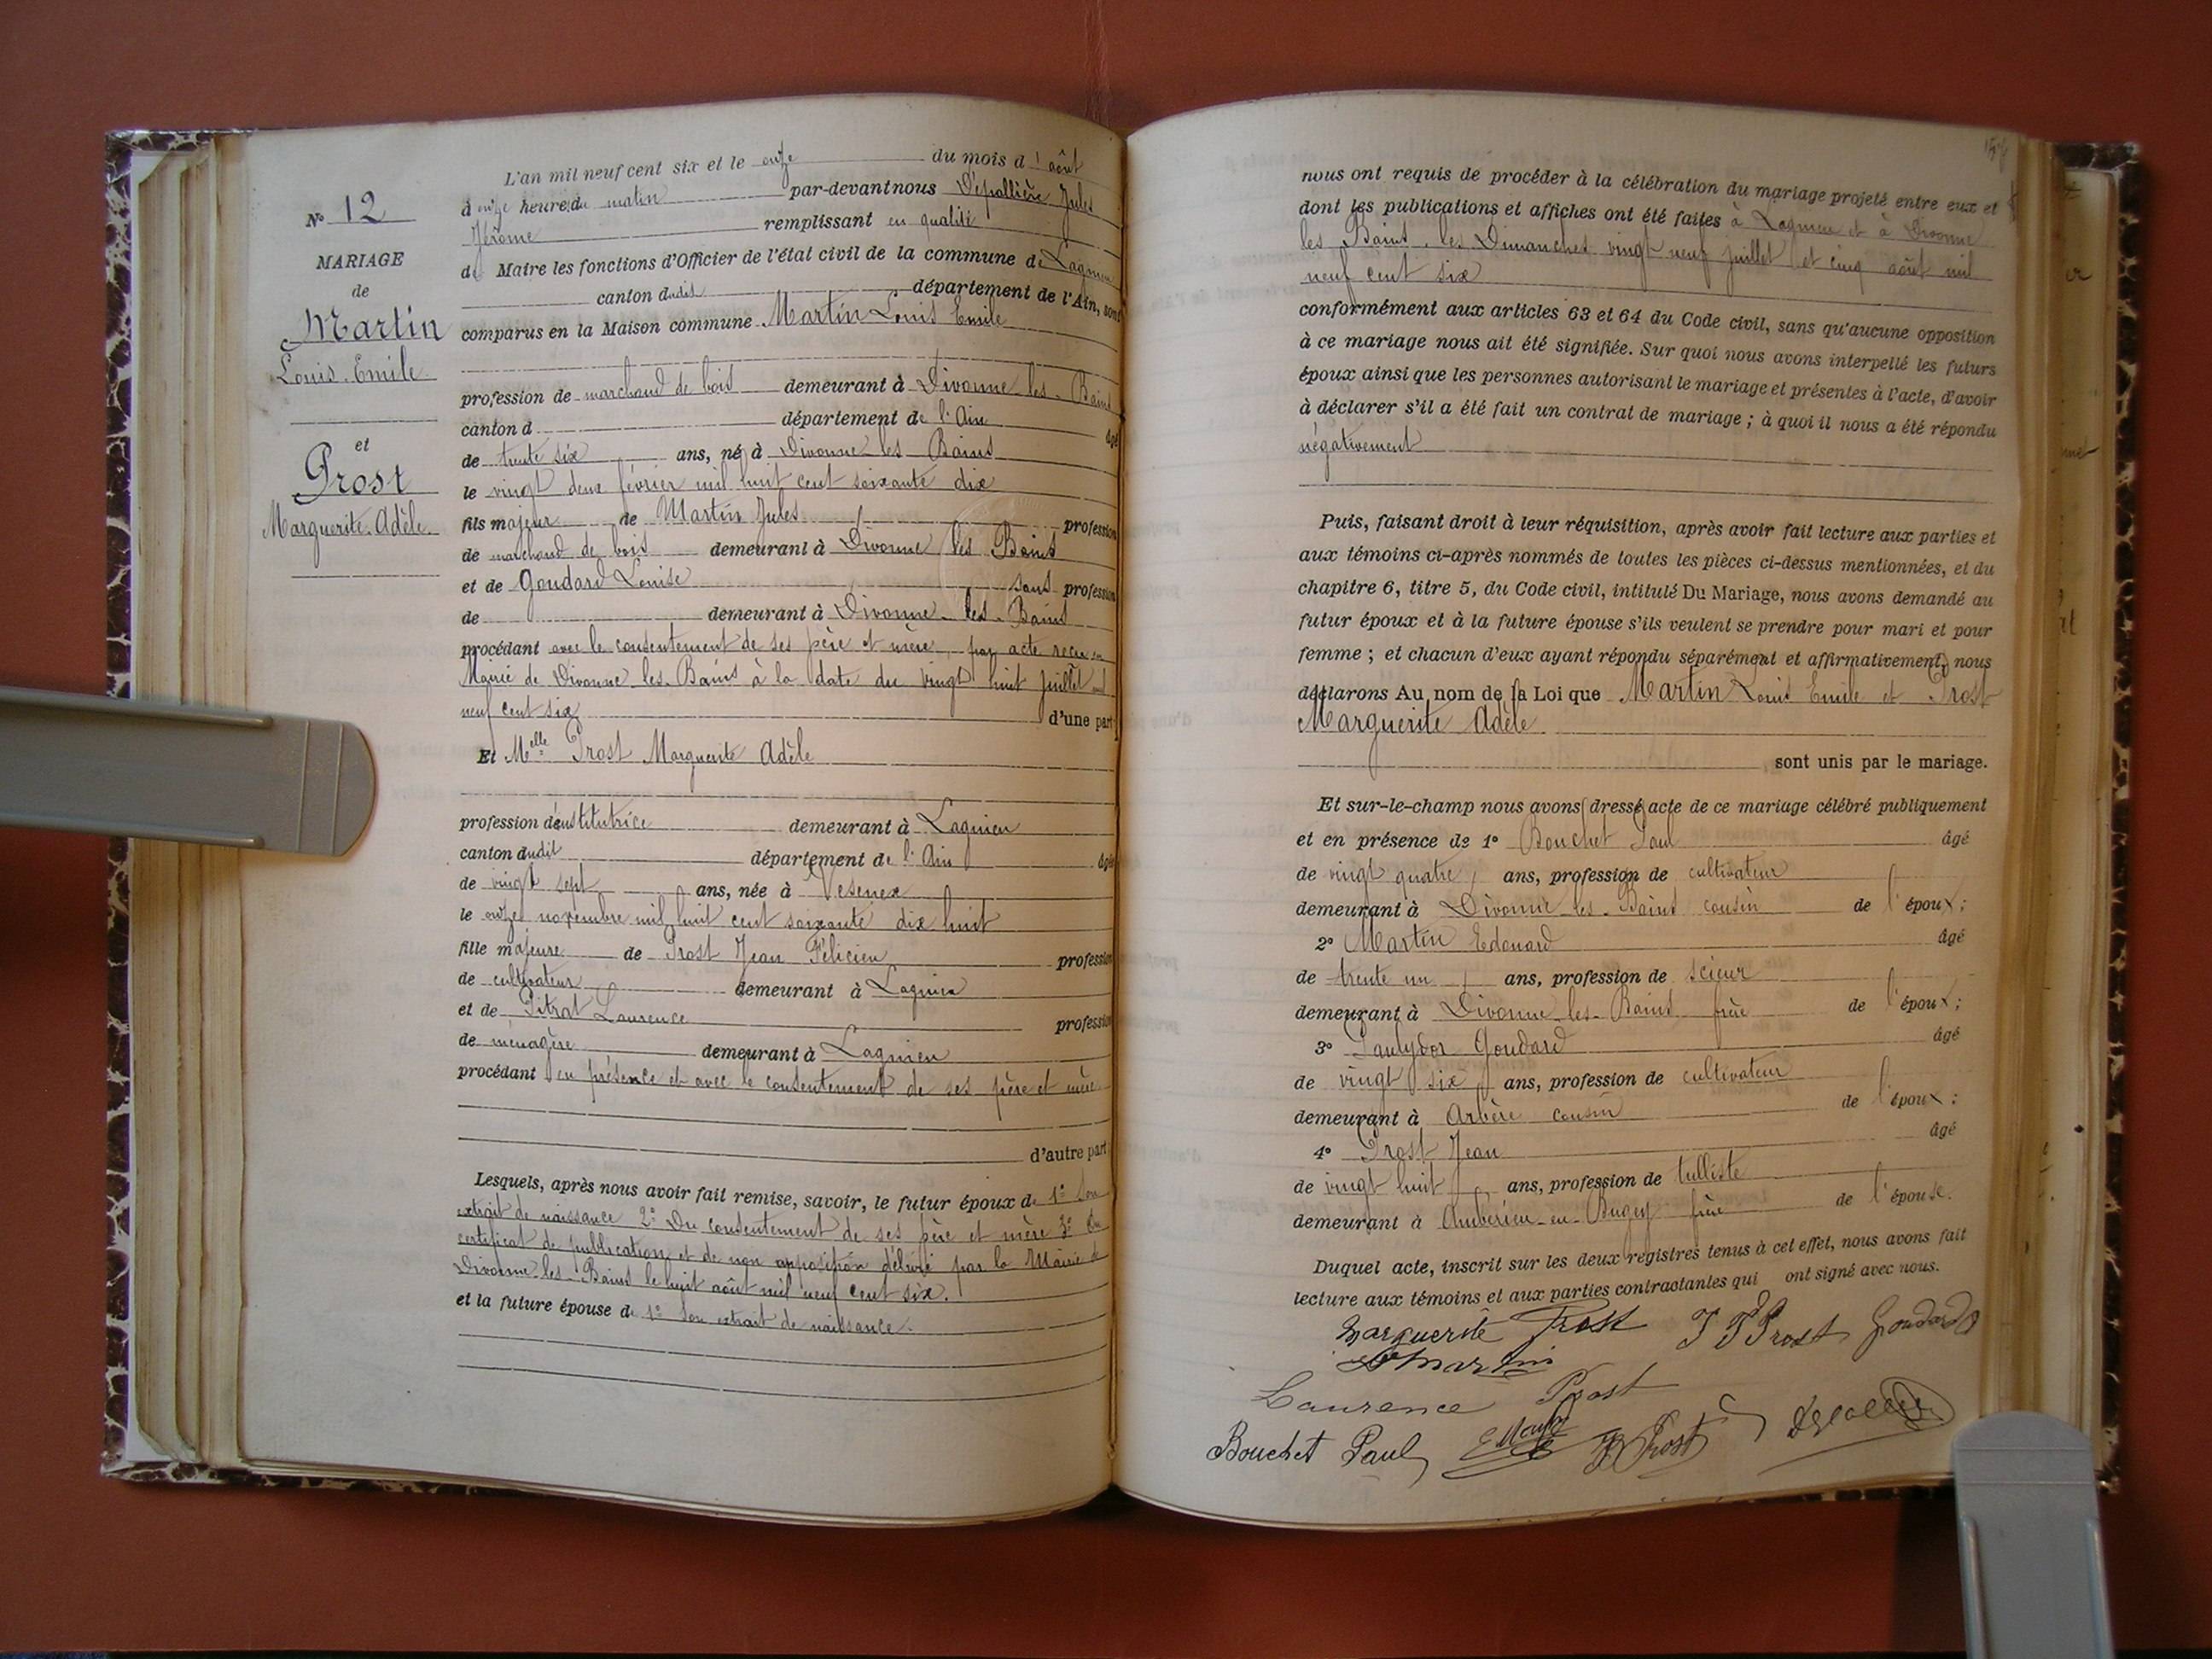 N° 12
MARIAGE
de
Martin
Louis Emile
et
Prost
Marguerite Adèle.
L'an mil neuf cent six et le onze du mois d'août
à onze heures du matin par-devant nous Dépallière Jules
Jérôme remplissant en qualité
de Maire les fonctions d'Officier de l'état civil de la commune de Lagnieu
canton dudit département de l'Ain, sont
comparus en la Maison commune Martin Louis Emile
profession de marchand de bois demeurant à Divonne-les-Bains
canton d département de l'Ain âgé
de trente six ans, né à Divonne les Bains
le vingt deux février mil huit cent soixante dix
fils majeur de Martin Jules profession
de marchand de bois demeurant à Divonne les Bains
et de Goudard Louise sans profession
de demeurant à Divonne-les-Bains
procédant avec le consentement de ses père et mère par acte reçu en
Mairie de Divonne-les-Bains à la date du vingt huit juillet mil
neuf cent six d'une part
Et Melle Prost Marguerite Adèle
profession d'institutrice demeurant à Lagnieu
canton dudit département de l'Ain âgée
de vingt sept ans, née à Vesenex
le onze novembre mil huit cent soixante dix huit
fille majeure de Prost Jean Félicien profession
de cultivateur demeurant à Lagnieu
et de Pitrat Laurence profession
de ménagère demeurant à Lagnieu
procédant en présence et avec le consentement de ses père et mère
d'autre part
Lesquels, après nous avoir fait remise, savoir, le futur époux de 1° Son
extrait de naissance 2° Du consentement de ses père et mère 3° Du
certificat de publication et de non opposition délivré par la Mairie de
Divonne-les-Bains le huit août mil neuf cent six.
et la future épouse de 1° Son extrait de naissance.
nous ont requis de procéder à la célébration du mariage projeté entre eux et
dont les publications et affiches ont été faites à Lagnieu et à Divonne
les Bains, les Dimanches vingt neuf juillet et cinq août mil
neuf cent six
conformément aux articles 63 et 64 du Code civil, sans qu'aucune opposition
à ce mariage nous ait été signifiée. Sur quoi nous avons interpellé les futurs
époux ainsi que les personnes autorisant le mariage et présentes à l'acte, d'avoir
à déclarer s'il a été fait un contrat de mariage ; à quoi il nous a été répondu
négativement
Puis, faisant droit à leur réquisition, après avoir fait lecture aux parties et
aux témoins ci-après nommés de toutes les pièces ci-dessus mentionnées, et du
chapitre 6, titre 5, du Code civil, intitulé Du Mariage, nous avons demandé au
futur époux et à la future épouse s'ils veulent se prendre pour mari et pour
femme ; et chacun d'eux ayant répondu séparément et affirmativement, nous
déclarons Au nom de la Loi que Martin Louis Emile et Prost
Marguerite Adèle
sont unis par le mariage.
Et sur-le-champ nous avons dressé acte de ce mariage célébré publiquement
et en présence de 1° Bouchet Paul âgé
de vingt quatre ans, profession de cultivateur
demeurant à Divonne-les-Bains cousin de l'époux ;
2° Martin Edouard âgé
de trente un ans, profession de scieur
demeurant à Divonne-les-Bains frère de l'époux ;
3° Paulydor Goudard âgé
de vingt six ans, profession de cultivateur
demeurant à Arbère cousin de l'époux ;
4° Prost Jean âgé
de vingt huit ans, profession de tulliste
demeurant à Ambérieu-en-Bugey frère de l'épouse.
Duquel acte, inscrit sur les deux registres tenus à cet effet, nous avons fait
lecture aux témoins et aux parties contractantes qui ont signé avec nous.
Marguerite Prost J F Prost Goudard
Martin
Laurence Prost
Bouchet Paul Prost